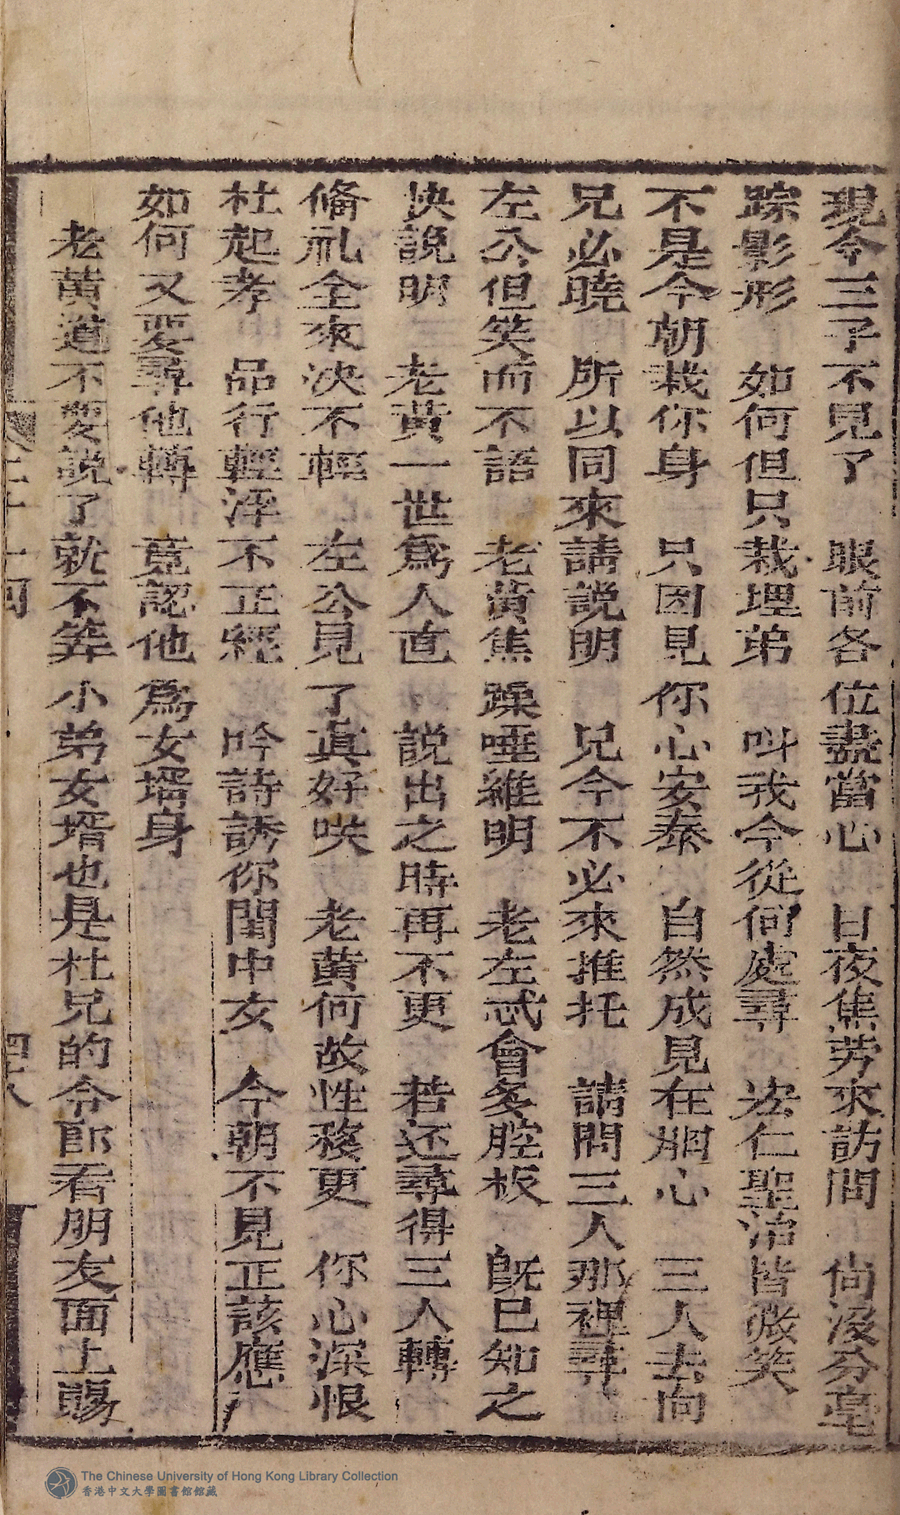 現今三子不見了　眼前各位盡當心　日夜焦劳來訪問　尙没分毫
踪影形　如何但只栽埋弟　叫我今從何處尋　宏仁聖治皆微笑
不是今朝栽你身　只因見你心安泰　自然成見在胸心　三人去向
兄必曉　所以同來請説明　兄今不必來推托　請問三人那裡尋
左公但笑而不語　老黄焦躁唾維明　老左忒會多腔板　旣已知之
快說明　老黃一世爲人直　説出之時再不更　若还尋得三人轉
俻礼全來决不輕　左公見了真好咲　老黄何故性移更　你心深恨
杜起孝　品行輕浮不正經　吟詩誘你閨中女　今朝不見正該應
如何又要尋他轉　竟認他爲女壻身
老黄道不要説了就不筭小弟女壻也是杜兄的令郎看朋友面上賜
四八
The Chinese University of Hong Kong Library Collection
香港中文大學圖書館館藏